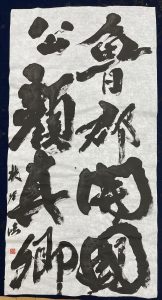 魯郡開國
公顏真卿